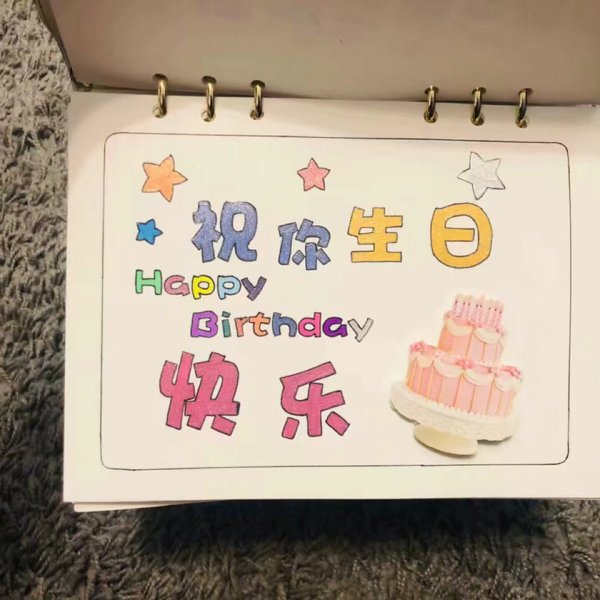 祝你生日
Happy
Birthday
快乐